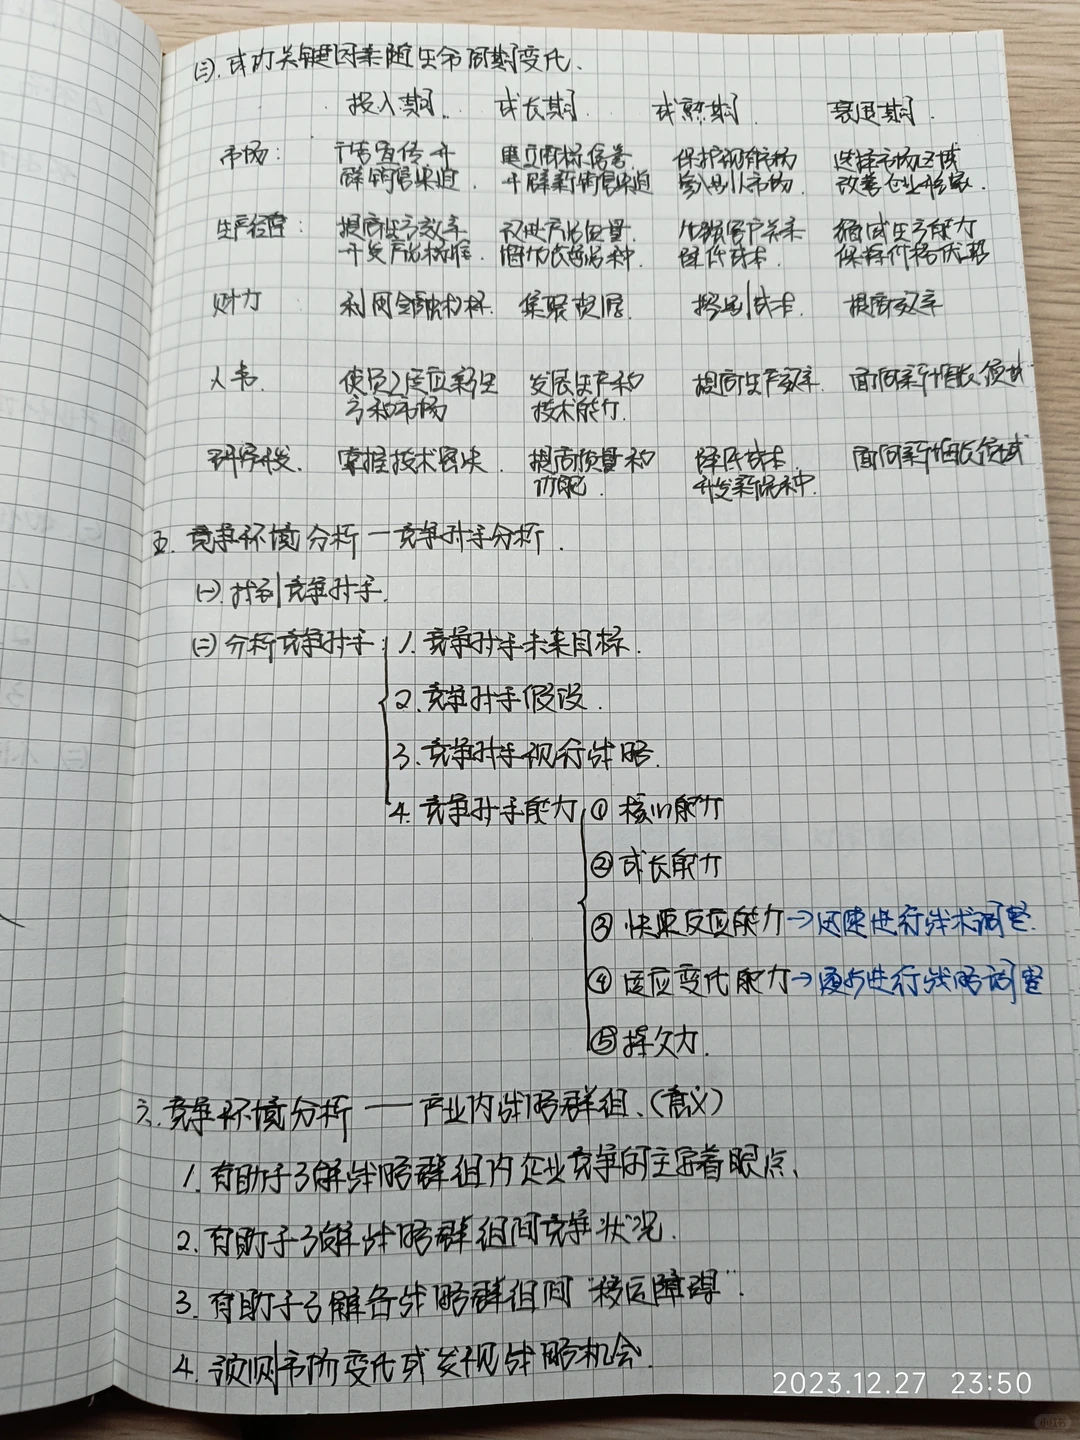 (三).成功关键因素随生命周期变化.
投入期. 成长期. 成熟期. 衰退期.
市场: 广告宣传开 建立商标信誉 保护现有市场 选择市场区域
辟销售渠道. 开辟新销售渠道 渗入别人市场. 改善企业形象.
生产经营: 提高生产效率 改进产品质量. 加强客户关系 缩减生产能力
开发产品标准. 增加花色品种. 降低成本. 保持价格优势
财力: 利用金融杠杆. 集聚资源. 控制成本. 提高效率
人事. 使员工适应新生 发展生产和 提高生产效率. 面向新增长领域
产和市场 技术能力.
研究开发. 掌握技术秘诀. 提高质量和 降低成本. 面向新增长领域
功能. 开发新品种.
五. 竞争环境分析—竞争对手分析.
(一).找到竞争对手.
(二)分析竞争对手 1.竞争对手未来目标.
2.竞争对手假设.
3.竞争对手现行战略.
4.竞争对手能力 ①核心能力
②成长能力
③快速反应能力→迅速进行战术调整.
④适应变化能力→逐步进行战略调整
⑤持久力.
六.竞争环境分析——产业内战略群组.(意义)
1.有助于了解战略群组内企业竞争的主要着眼点.
2.有助于了解战略群组间竞争状况.
3.有助于了解各战略群组间"移动障碍".
4.预测市场变化或发现战略机会.
2023.12.27 23:50
小红书